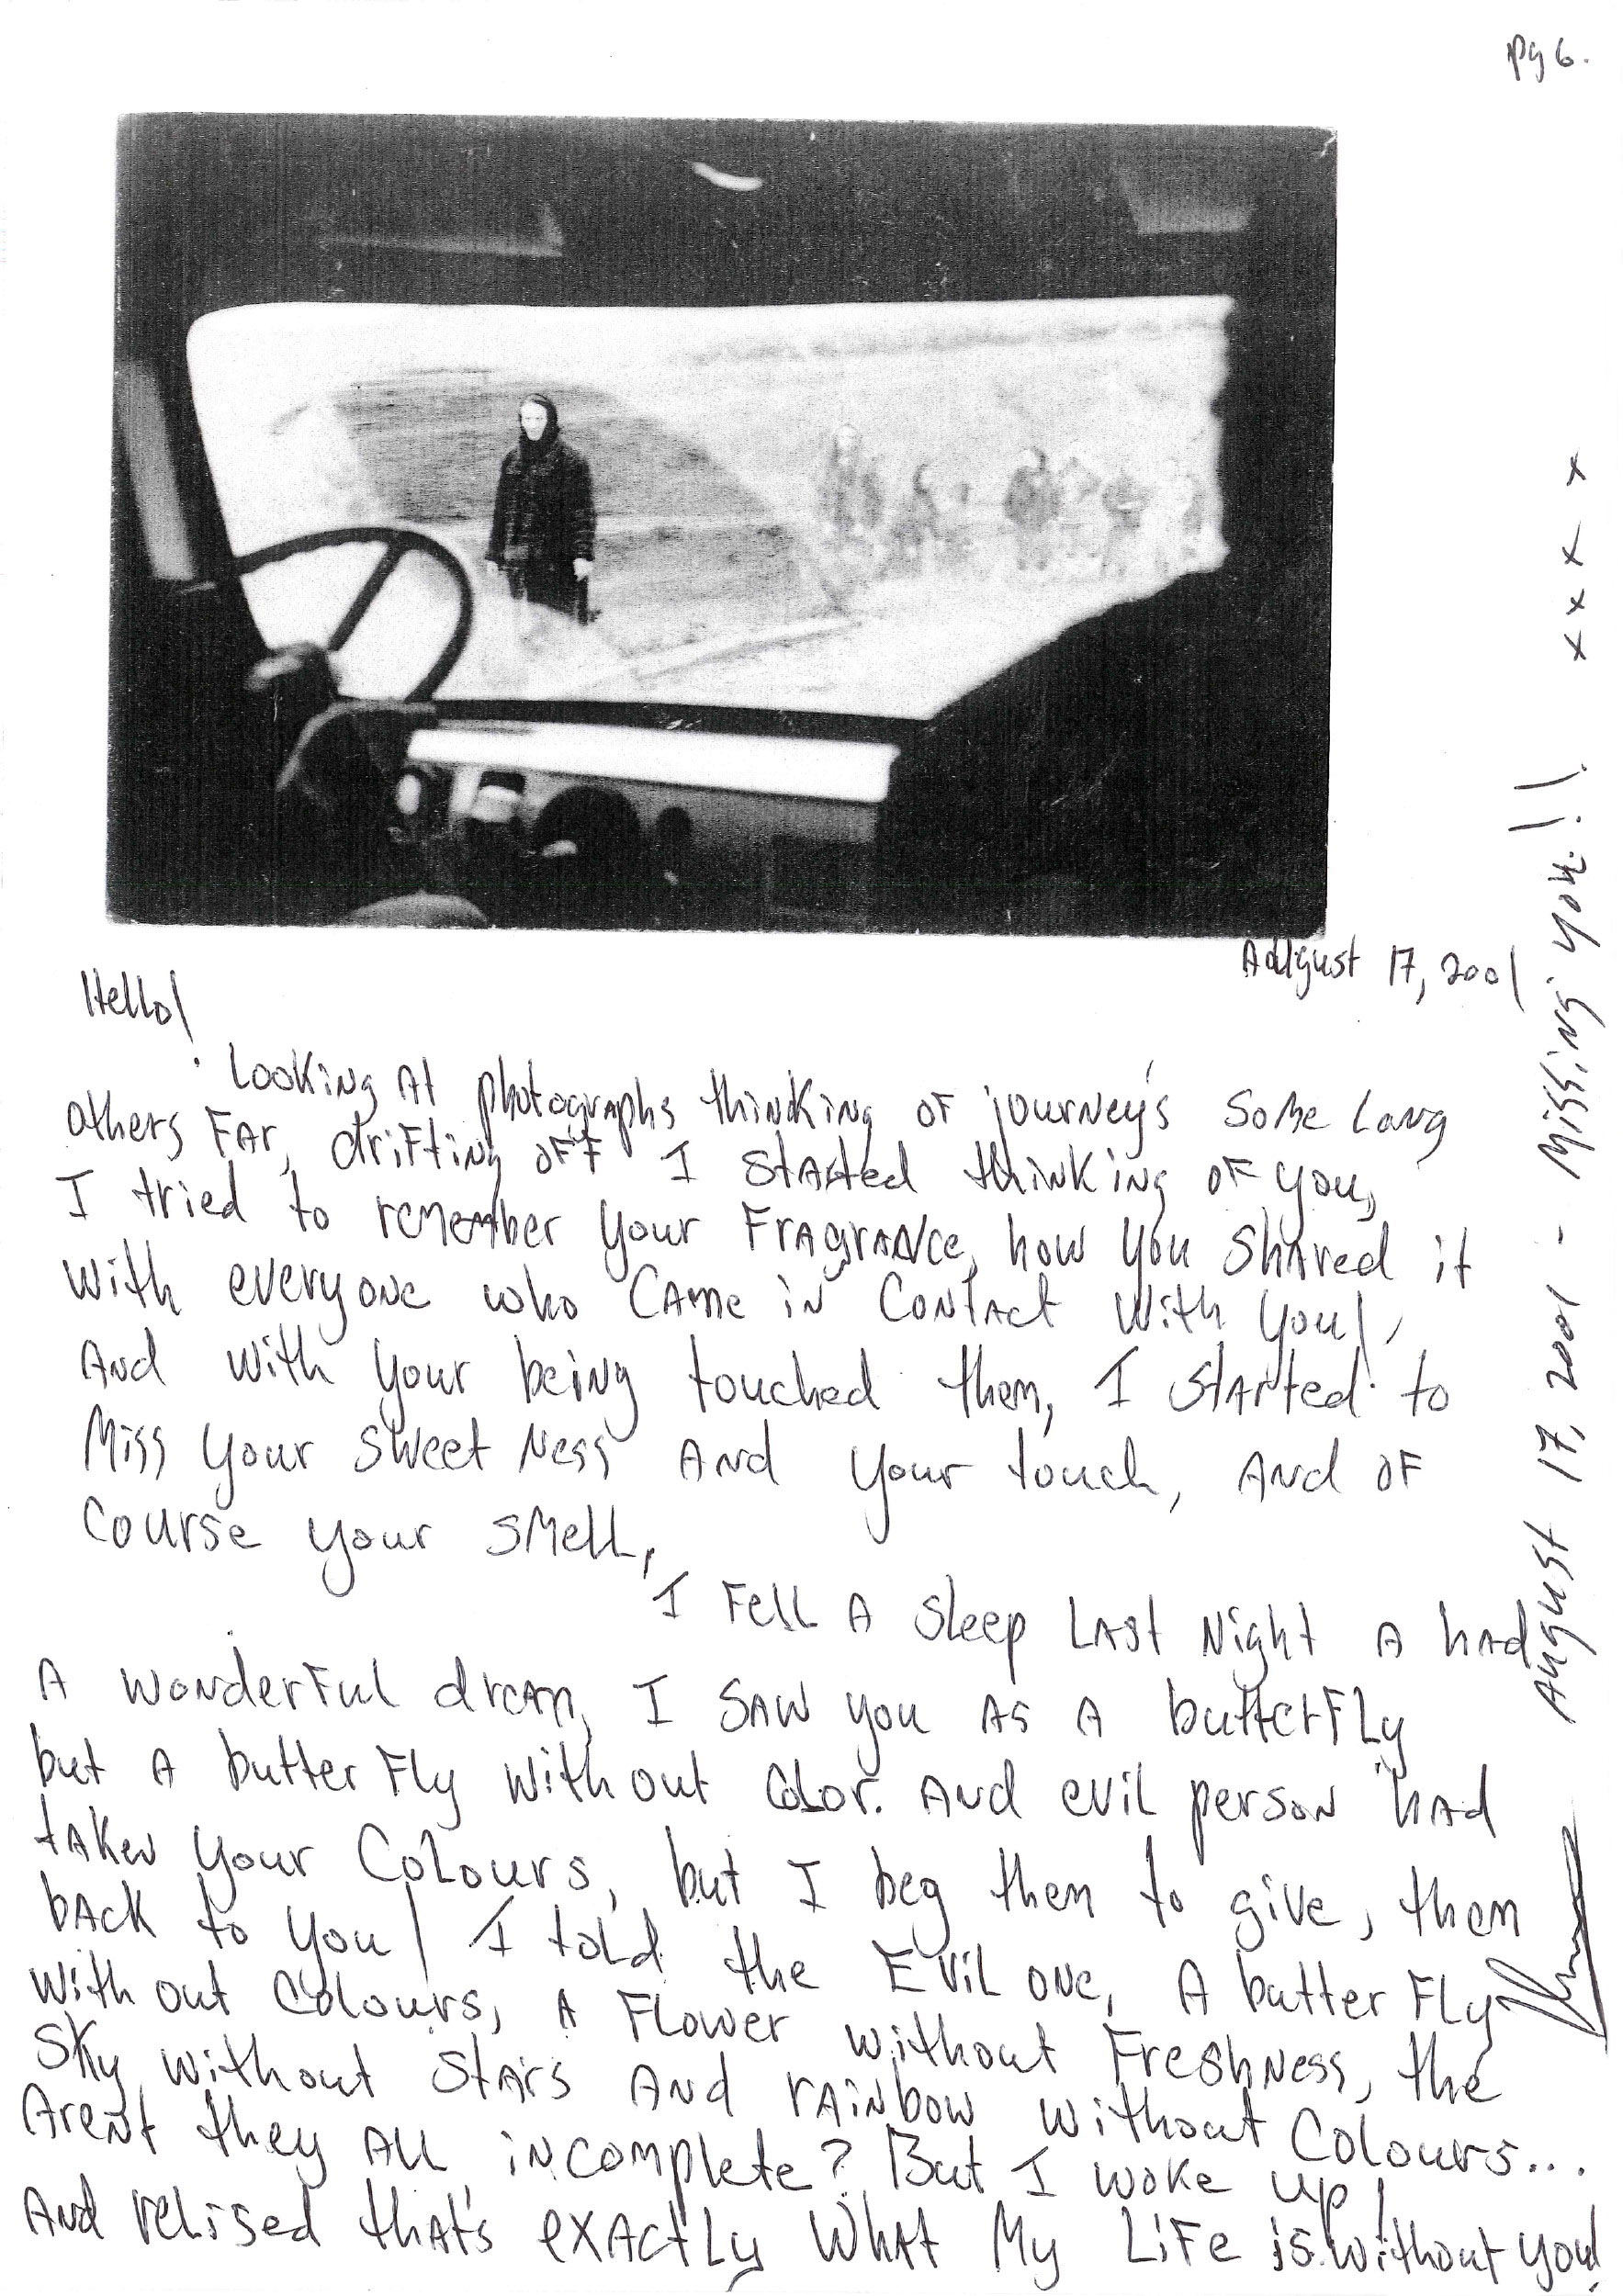 pg 6.
August 17, 2001
Hello!
Looking At photographs thinking of journey's some long
others far, drifting off I started thinking of you,
I tried to remember your Fragrance, how you shared it
with everyone who came in contact with you!,
And with your being touched them, I started to
Miss your sweet Ness And your touch, And of
course your smell,
I fell A sleep last Night A had
A wonderful dream, I saw you as A butterfly
but A butter fly with out color. And evil person had
taken your Colours, but I beg them to give, them
back to you! I told the Evil one, A butter fly
with out Colours, A Flower without Freshness, the
sky without stars And rainbow without Colours...
Arent they all incomplete? But I woke up!
And relised that's exactly what my Life is without you!
August 17, 2001 - Missing you!! x x x x